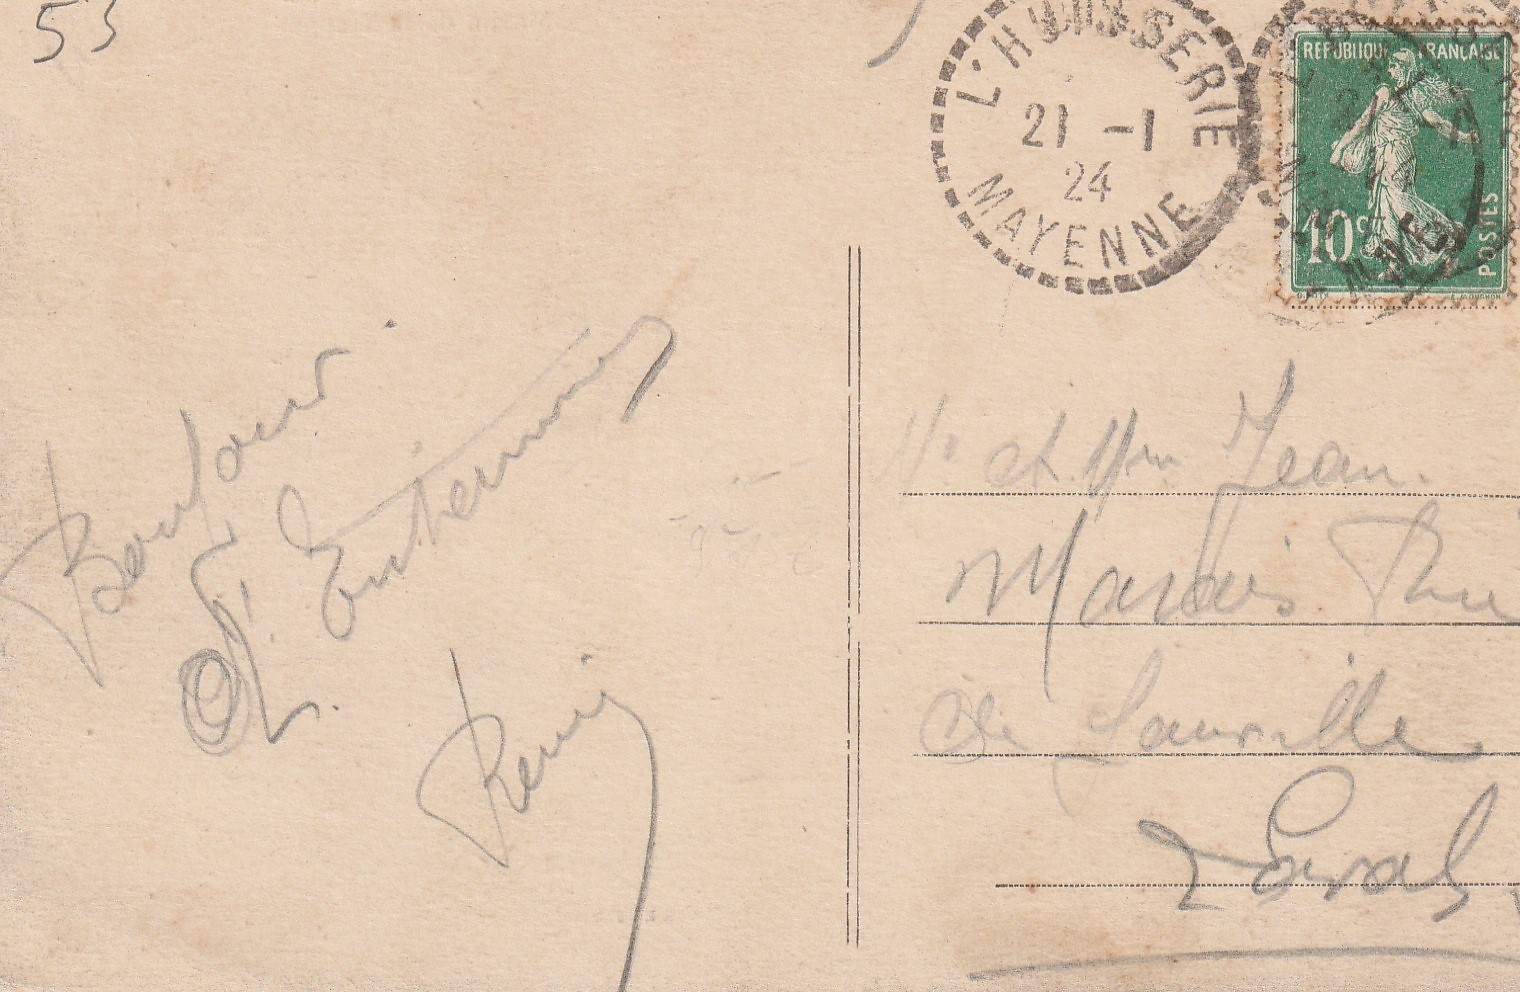 53
Bonjour
d'Entrammes
Remy
L'HUISSERIE
21 -1
24
MAYENNE
REPUBLIQUE FRANÇAISE
10c
POSTES
Mr et Mme Jean
Marais Rue
de
Laval